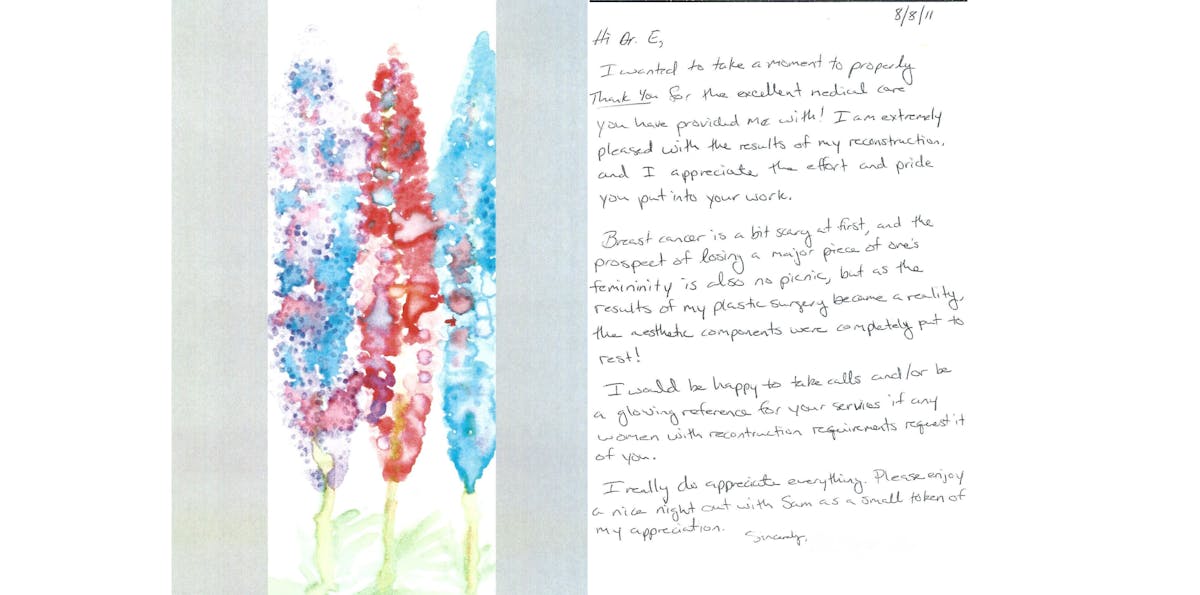 8/8/11
Hi Dr. E,
I wanted to take a moment to properly
Thank You for the excellent medical care
you have provided me with! I am extremely
pleased with the results of my reconstruction,
and I appreciate the effort and pride
you put into your work.
Breast cancer is a bit scary at first, and the
prospect of losing a major piece of one's
femininity is also no picnic, but as the
results of my plastic surgery became a reality,
the aesthetic components were completely put to
rest!
I would be happy to take calls and/or be
a glowing reference for your servies if any
women with recontruction requirements request it
of you.
I really do appreciate everything. Please enjoy
a nice night out with Sam as a small token of
my appreciation.
Sincerely,